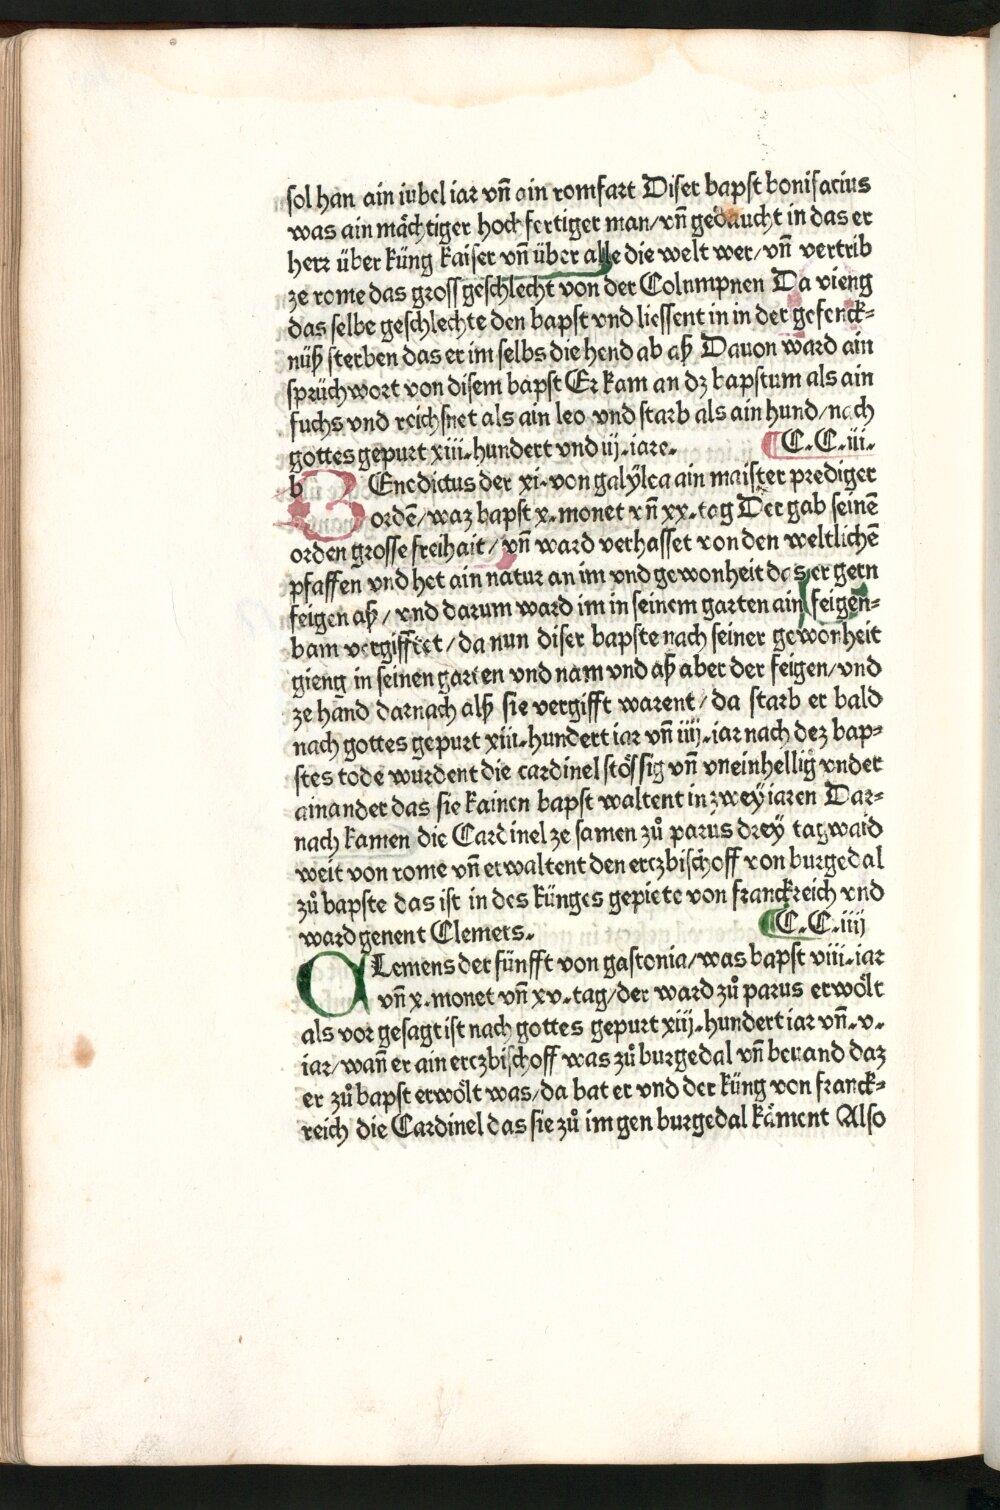 sol han ain iubel iar vn̄ ain romfart Diser bapst bonifacius
was ain mächtiger hochfertiger man/vn̄ gedaucht in das er
herr über küng kaiser vn̄ über alle die welt wer/vn̄ vertrib
ze rome das gross geschlecht von der Columpnen Da vieng
das selbe geschlechte den bapst vnd liessent in in der gefenck⸗
nüß sterben das er im selbs die hend ab aß Dauon ward ain
sprüchwort von disem bapst Er kam an dz bapstum als ain
fuchs vnd reichsnet als ain leo vnd starb als ain hund/nach
gottes gepurt xiii.hundert vnd iij.iare. C.C.iii.
b BEnedictus der xi.von galÿlea ain maister prediger
ordē/waz bapst x.monet vn̄ xx.tag Der gab seinē
orden grosse freihait/vn̄ ward verhasset von den weltlichē
pfaffen vnd het ain natur an im vnd gewonheit das er gern
feigen aß/vnd darum ward im in seinem garten ain feigen⸗
bam vergifftet/da nun diser bapste nach seiner gewonheit
gieng in seinen garten vnd nam vnd aß aber der feigen/vnd
ze hānd darnach alß sie vergifft warent/da starb er bald
nach gottes gepurt xiii.hundert iar vn̄ iiij.iar nach dez bap⸗
stes tode wurdent die cardinel stössig vn̄ vneinhellig vnder
ainander das sie kainen bapst waltent in zweÿ iaren Dar⸗
nach kamen die Cardinel ze samen zů parus dreÿ tagwaid
weit von rome vn̄ erwaltent den erczbischoff von burgedal
zů bapste das ist in des künges gepiete von franckreich vnd
ward genent Clemens. C.C.iiij
CLemens der fünfft von gastonia/was bapst viii.iar
vn̄ x.monet vn̄ xv.tag/der ward zů parus erwölt
als vor gesagt ist nach gottes gepurt xiij.hundert iar vn̄.v.
iar/wan̄ er ain erczbischoff was zů burgedal vn̄ bevand daz
er zů bapst erwölt was/da bat er vnd der küng von franck⸗
reich die Cardinel das sie zů im gen burgedal käment Also